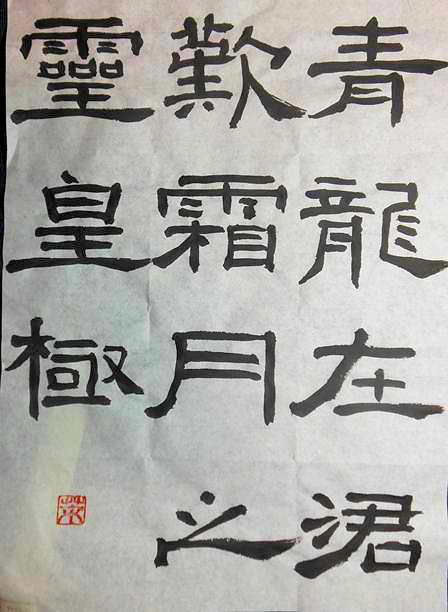 青龍在涒
歎霜月之
靈皇極